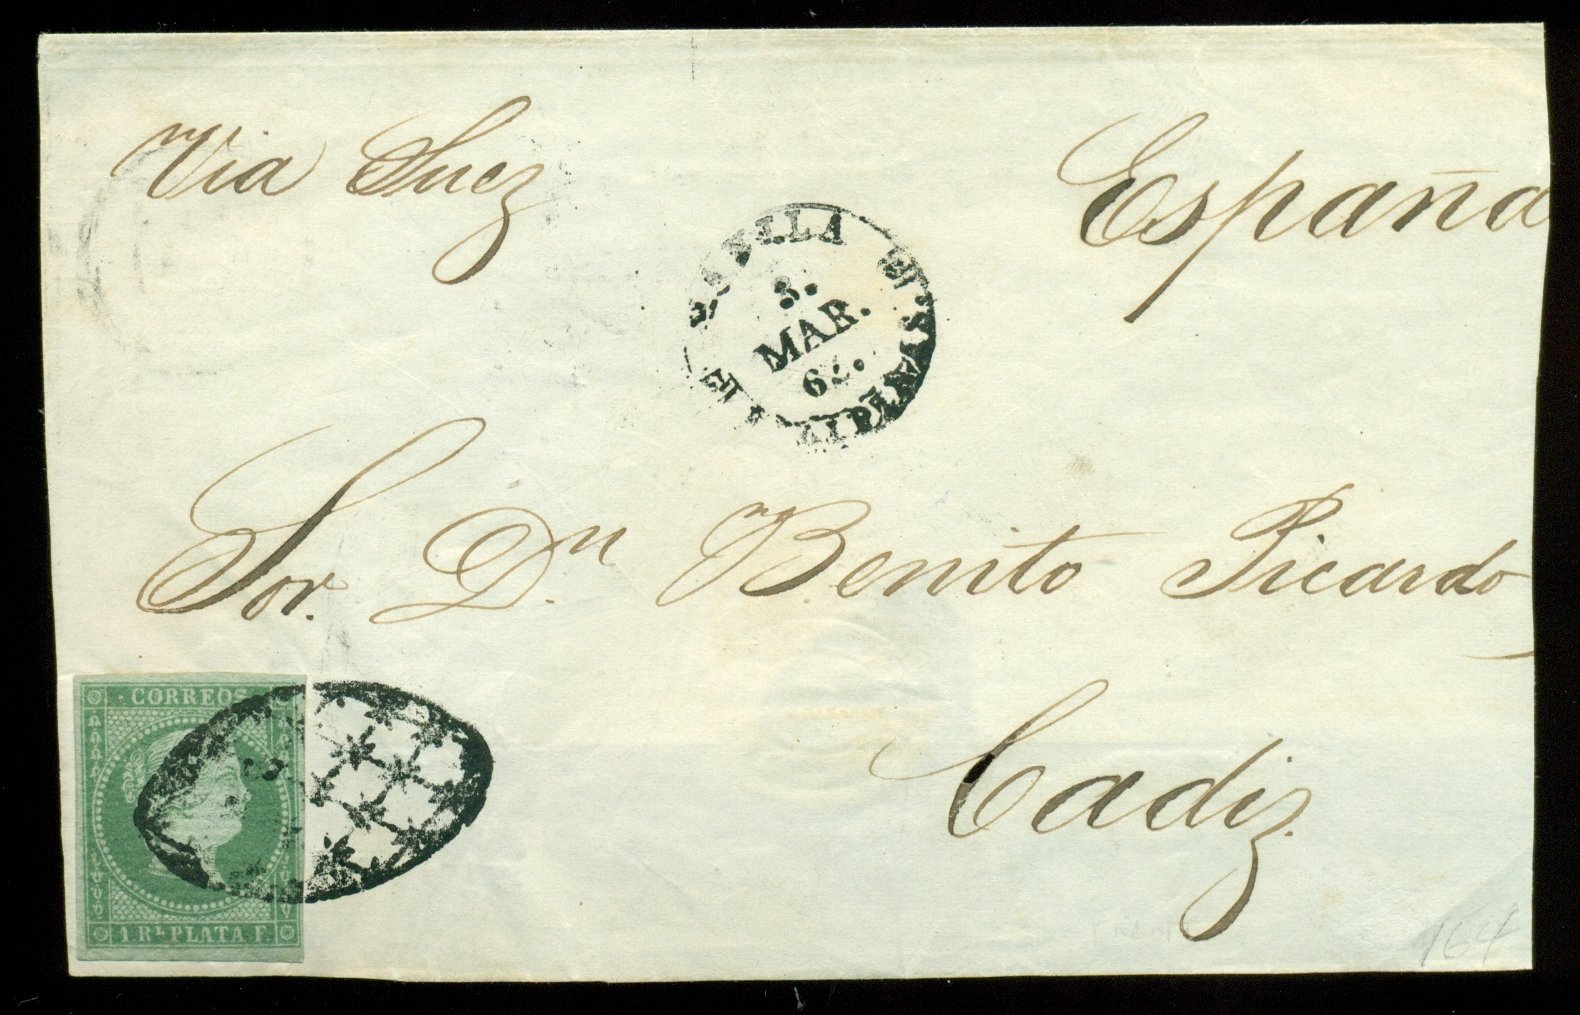 Via Suez
España
MANILA E YSLAS FILIPINAS
3.
MAR.
62.
Sor. Dn. Benito Picardo
Cadiz.
CORREOS
1 Rl. PLATA F.
164